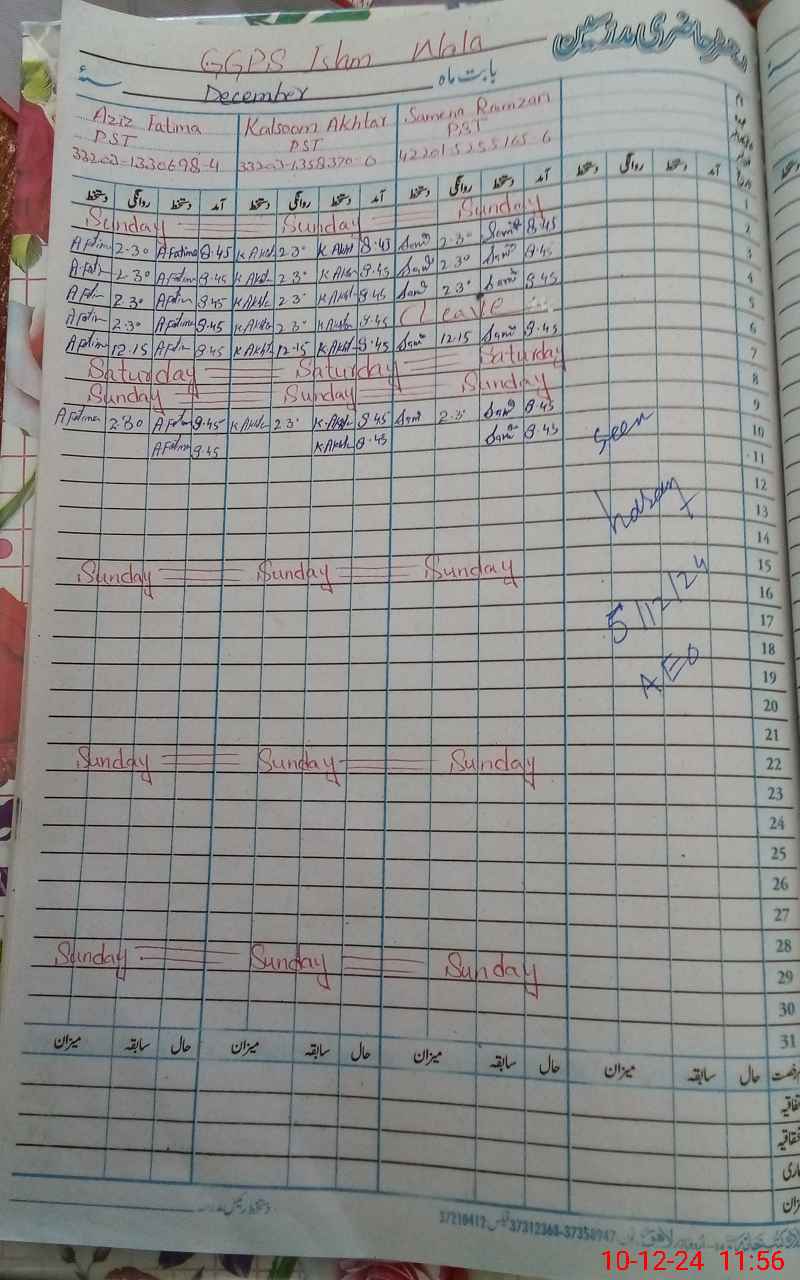 GGPS Islam Wala
دفتر حاضری مدرسین
بابت ماہ December سنہ
Aziz Fatima Kalsoom Akhtar Samena Ramzan
PST PST PST
33203-1330698-4 33203-1358370-0 42201-5255165-6
دستخط روانگی دستخط آمد دستخط روانگی دستخط آمد دستخط روانگی دستخط آمد دستخط روانگی دستخط آمد
Sunday Sunday Sunday 1
A Fatima 2.30 A Fatima 8.45 K Akhtr 2.30 K Akht 8.45 Sam 2.30 Sam 8.45 2
A Fatm 2.30 A Fatima 8.45 K Akht 2.30 K Akht 8.45 Sam 2.30 Sam 8.45 3
A Fatm 2.30 A Fatim 8.45 K Akht 2.30 K Akht 8.45 Sam 2.30 Sam 8.45 4
A Fatima 2.30 A Fatima 8.45 K Akht 2.30 K Akht 8.45 C Leave 5
A Fatima 12.15 A Fatim 8.45 K Akht 12.15 K Akht 8.45 Sam 12.15 Sam 8.45 6
Saturday Saturday Saturday 7
Sunday Sunday Sunday 8
A Fatima 2.30 A Fatima 8.45 K Akht 2.30 K Akht 8.45 Sam 2.30 Sam 8.45 9
A Fatima 8.45 K Akht 8.45 Sam 8.45 10
Seen
11
12
13
14
Sunday Sunday Sunday 15
16
5/12/24
17
18
AEO
19
20
21
Sunday Sunday Sunday 22
23
24
25
26
27
28
Sunday Sunday Sunday 29
30
31
میزان سابقہ حال میزان سابقہ حال میزان سابقہ حال میزان سابقہ حال رخصت
دستخط رئیس مدرسہ
37210412 37312368-37350947
10-12-24 11:56